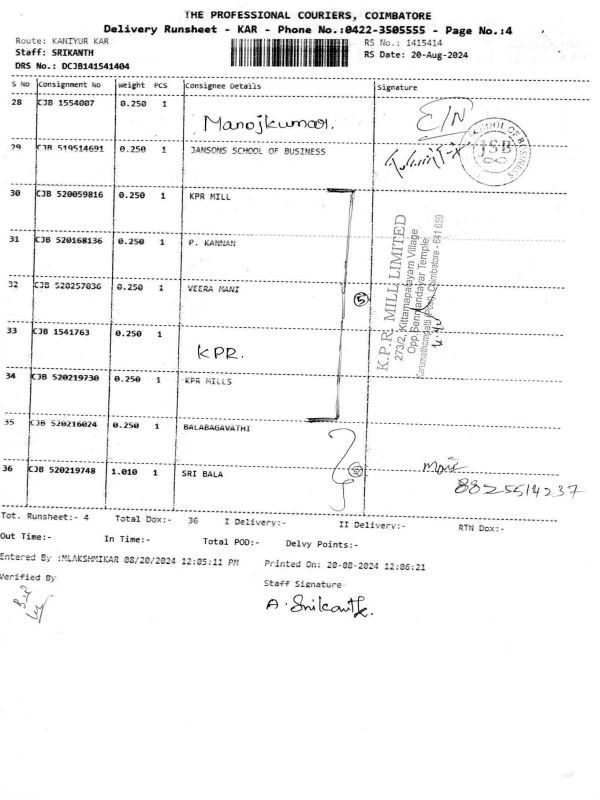 THE PROFESSIONAL COURIERS, COIMBATORE
Delivery Runsheet - KAR - Phone No.:0422-3505555 - Page No.:4
Route: KANIYUR KAR RS No.: 1415414
Staff: SRIKANTH RS Date: 20-Aug-2024
DRS No.: DCJB141541404
S No Consignment No Weight PCS Consignee Details Signature
28 CJB 1554007 0.250 1 Manojkumar. E/N
29 CJB 519514691 0.250 1 JANSONS SCHOOL OF BUSINESS
SCHOOL OF BUSINESS
JSB
30 CJB 520059816 0.250 1 KPR MILL
31 CJB 520168136 0.250 1 P. KANNAN
32 CJB 520257036 0.250 1 VEERA MANI
5
33 CJB 1541763 0.250 1 KPR.
34 CJB 520219730 0.250 1 KPR MILLS
K.P.R. MILL LIMITED
273/2, Kittampalayam Village
Opp. Senniandavar Temple
Karumathampatti (Post), Coimbatore - 641 659
35 CJB 520216024 0.250 1 BALABAGAVATHI
36 CJB 520219748 1.010 1 SRI BALA
8825514237
Tot. Runsheet:- 4 Total Dox:- 36 I Delivery:- II Delivery:- RTN Dox:-
Out Time:- In Time:- Total POD:- Delvy Points:-
Entered By :MLAKSHMIKAR 08/20/2024 12:05:11 PM Printed On: 20-08-2024 12:06:21
Verified By Staff Signature
A. Srikanth.